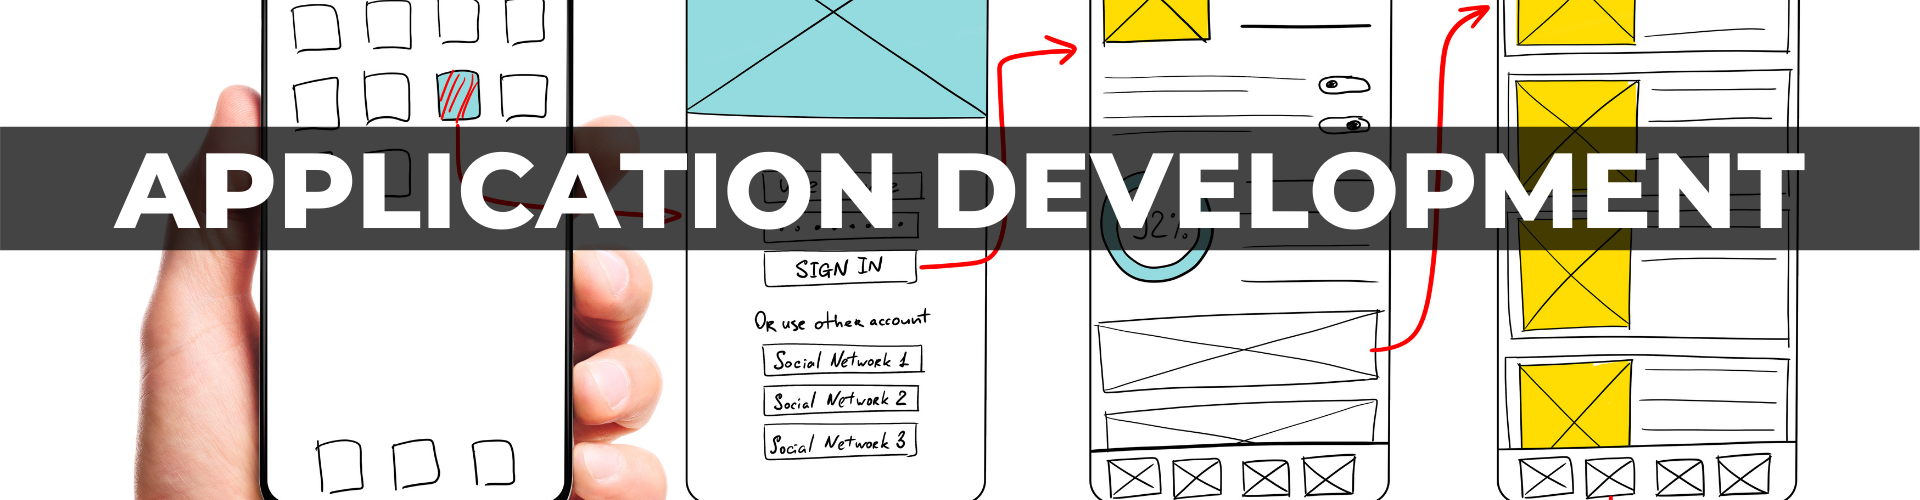 APPLICATION DEVELOPMENT
32%
SIGN IN
OR use other account
Social Network 1
Social Network 2
Social Network 3